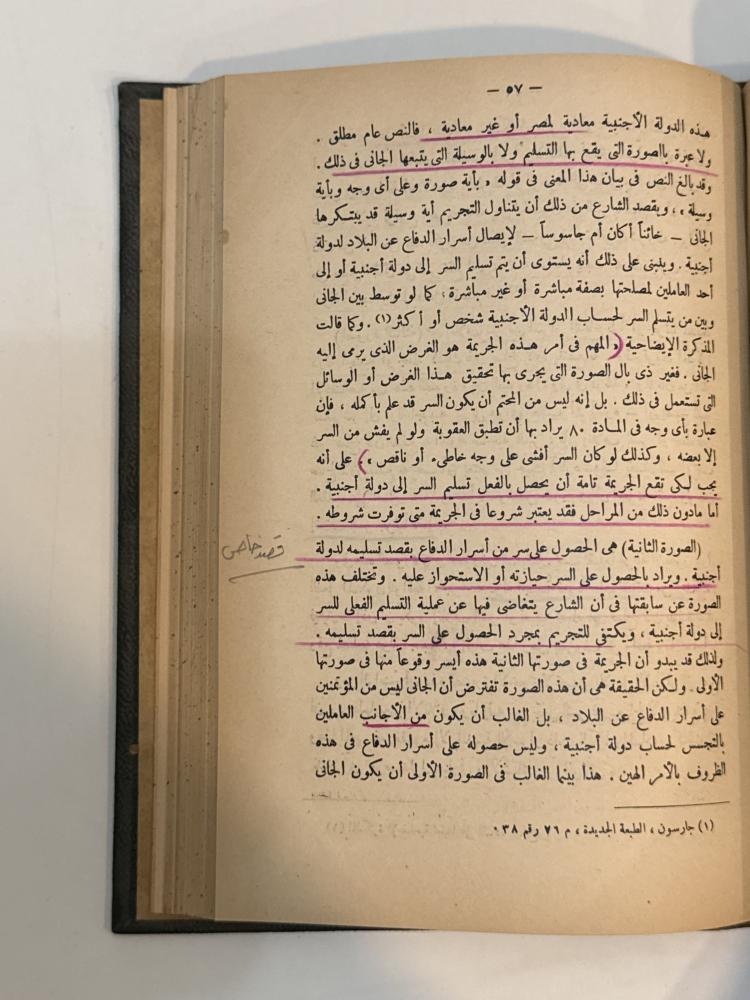 — ٥٧ —
هذه الدولة الأجنبية معادية لمصر أو غير معادية ، فالنص عام مطلق .
ولا عبرة بالصورة التى يقع بها التسليم ولا بالوسيلة التى يتبعها الجانى فى ذلك .
وقد بالغ النص فى بيان هذا المعنى فى قوله « بأية صورة وعلى أى وجه وبأية
وسيلة » ، ويقصد الشارع من ذلك أن يتناول التجريم أية وسيلة قد يبتكرها
الجانى — خائناً أكان أم جاسوساً — لإيصال أسرار الدفاع عن البلاد لدولة
أجنبية . وينبنى على ذلك أنه يستوى أن يتم تسليم السر إلى دولة أجنبية أو إلى
أحد العاملين لمصلحتها بصفة مباشرة أو غير مباشرة ؛ كما لو توسط بين الجانى
وبين من يتسلم السر لحساب الدولة الأجنبية شخص أو أكثر (١) . وكما قالت
المذكرة الإيضاحية « المهم فى أمر هذه الجريمة هو الغرض الذى يرمى إليه
الجانى . فغير ذى بال الصورة التى يجرى بها تحقيق هذا الغرض أو الوسائل
التى تستعمل فى ذلك . بل إنه ليس من المحتم أن يكون السر قد علم بأكمله ، فإن
عبارة بأى وجه فى المادة ٨٠ يراد بها أن تطبق العقوبة ولو لم يفش من السر
إلا بعضه ، وكذلك لو كان السر أفشى على وجه خاطىء أو ناقص » . على أنه
يجب لكى تقع الجريمة تامة أن يحصل بالفعل تسليم السر إلى دولة أجنبية .
أما مادون ذلك من المراحل فقد يعتبر شروعا فى الجريمة متى توفرت شروطه .
(الصورة الثانية) هى الحصول على سر من أسرار الدفاع بقصد تسليمه لدولة
قصد خاص
أجنبية . ويراد بالحصول على السر حيازته أو الاستحواز عليه . وتختلف هذه
الصورة عن سابقتها فى أن الشارع يتغاضى فيها عن عملية التسليم الفعلى للسر
إلى دولة أجنبية ، ويكتفى للتجريم بمجرد الحصول على السر بقصد تسليمه .
ولذلك قد يبدو أن الجريمة فى صورتها الثانية هذه أيسر وقوعاً منها فى صورتها
الأولى . ولكن الحقيقة هى أن هذه الصورة تفترض أن الجانى ليس من المؤتمنين
على أسرار الدفاع عن البلاد ، بل الغالب أن يكون من الأجانب العاملين
بالتجسس لحساب دولة أجنبية ، وليس حصوله على أسرار الدفاع فى هذه
الظروف بالأمر الهين . هذا بينما الغالب فى الصورة الأولى أن يكون الجانى
(١) جارسون ، الطبعة الجديدة ، م ٧٦ رقم ٣٨ .